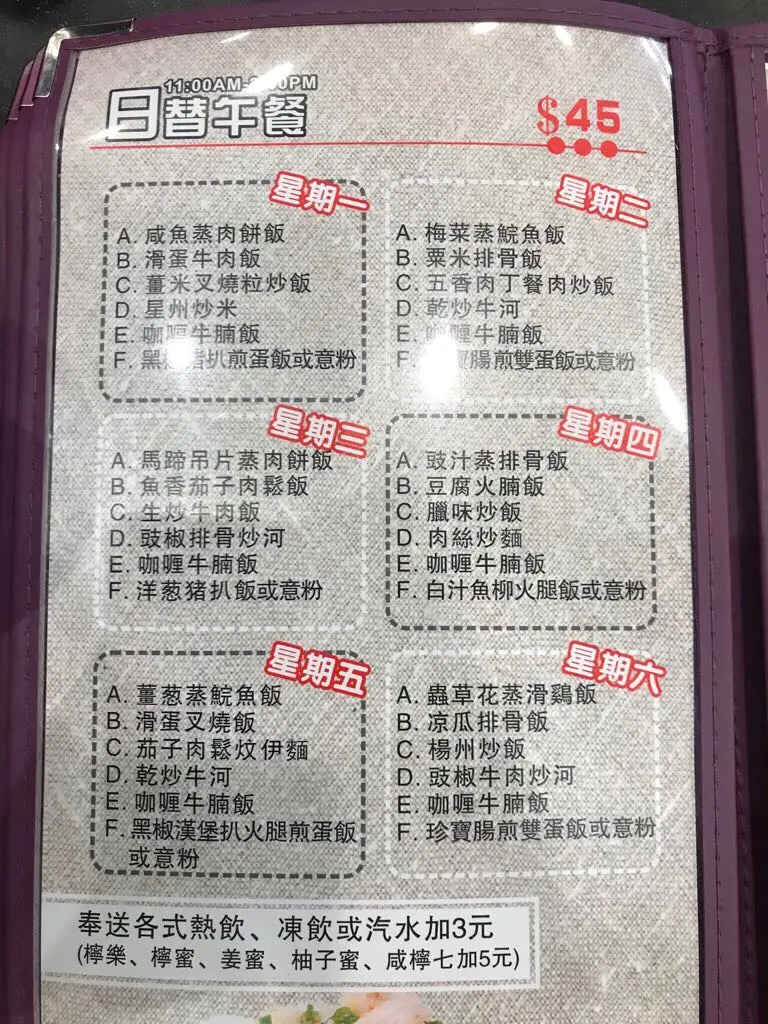 11:00AM-
日替午餐
$45
星期一
A. 咸魚蒸肉餅飯
B. 滑蛋牛肉飯
C. 薑米叉燒粒炒飯
D. 星州炒米
E. 咖喱牛腩飯
F. 黑椒豬扒煎蛋飯或意粉
星期二
A. 梅菜蒸鯇魚飯
B. 粟米排骨飯
C. 五香肉丁餐肉炒飯
D. 乾炒牛河
E. 咖喱牛腩飯
F. 寶腸煎雙蛋飯或意粉
星期三
A. 馬蹄吊片蒸肉餅飯
B. 魚香茄子肉鬆飯
C. 生炒牛肉飯
D. 豉椒排骨炒河
E. 咖喱牛腩飯
F. 洋葱猪扒飯或意粉
星期四
A. 豉汁蒸排骨飯
B. 豆腐火腩飯
C. 臘味炒飯
D. 肉絲炒麵
E. 咖喱牛腩飯
F. 白汁魚柳火腿飯或意粉
星期五
A. 薑葱蒸鯇魚飯
B. 滑蛋叉燒飯
C. 茄子肉鬆炆伊麵
D. 乾炒牛河
E. 咖喱牛腩飯
F. 黑椒漢堡扒火腿煎蛋飯
或意粉
星期六
A. 蟲草花蒸滑鷄飯
B. 凉瓜排骨飯
C. 楊州炒飯
D. 豉椒牛肉炒河
E. 咖喱牛腩飯
F. 珍寶腸煎雙蛋飯或意粉
奉送各式熱飲、凍飲或汽水加3元
(檸樂、檸蜜、姜蜜、柚子蜜、咸檸七加5元)